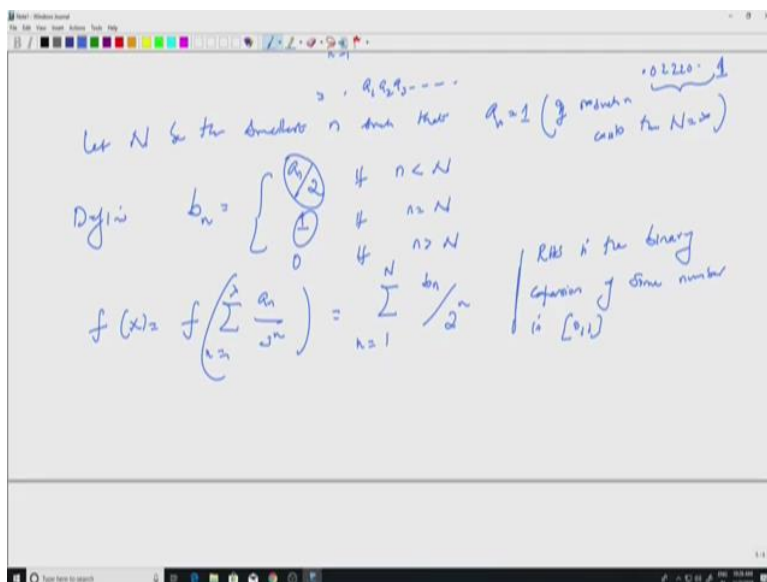 Note1 - Windows Journal
File Edit View Insert Actions Tools Help
n=1
= . a₁a₂a₃ - - - - .
.02220. 1
Let N be the smallest n such that aₙ = 1 (if no such n exists then N = ∞)
Define bₙ = { aₙ/2 if n < N
1 if n = N
0 if n > N
f(x) = f( ∑ aₙ/3ⁿ ) = ∑ₙ₌₁ᴺ bₙ/2ⁿ
RHS is the binary
expansion of some number
in [0,1]
Type here to search